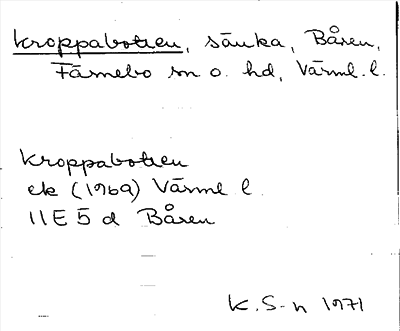 Kroppabotten, sänka, Båren,
Färnebo sn o. hd, Värml. l.
Kroppabotten
ek (1969) Värml l.
11E 5 d Båren
K. S-n 1971